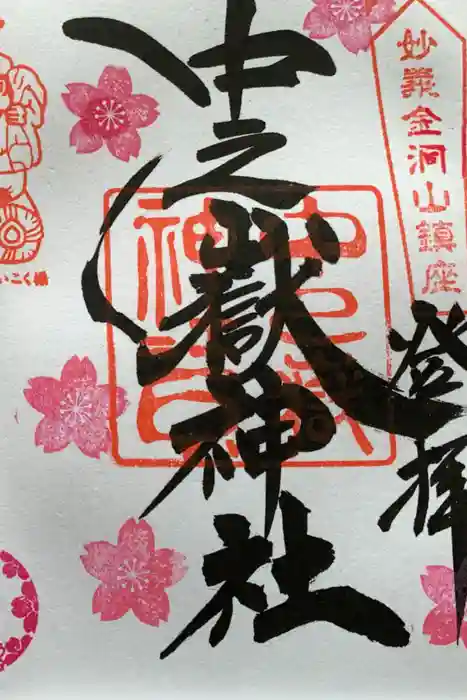 妙義金洞山鎮座
登拝
中之嶽神社
中之嶽
神社印
いこく様